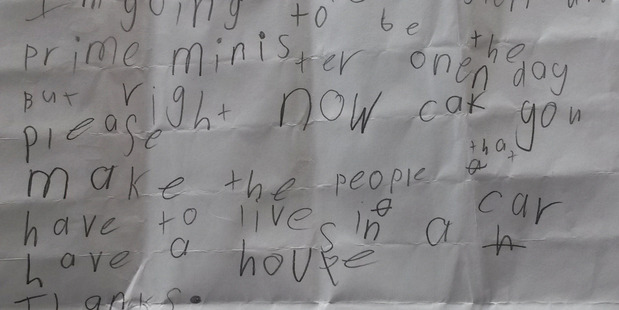 I'm going to be the
prime minister one day
But right now can you
please
make the people that
have to live in a car
have a house
Thanks.